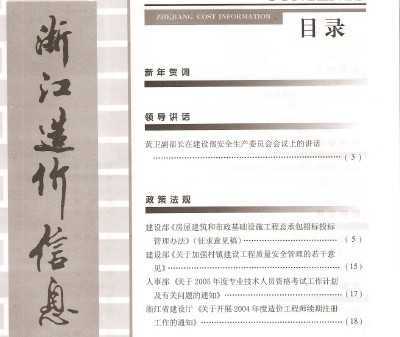 浙江造价信息
ZHEJIANG COST INFORMATION
目录
新年贺词
领导讲话
黄卫副部长在建设部安全生产委员会会议上的讲话
(3)
政策法规
建设部《房屋建筑和市政基础设施工程总承包招标投标
管理办法》(征求意见稿) (5)
建设部《关于加强村镇建设工程质量安全管理的若干意
见》 (15)
人事部《关于2005年度专业技术人员资格考试工作计划
及有关问题的通知》 (17)
浙江省建设厅《关于开展2004年度造价工程师续期注册
工作的通知》 (18)